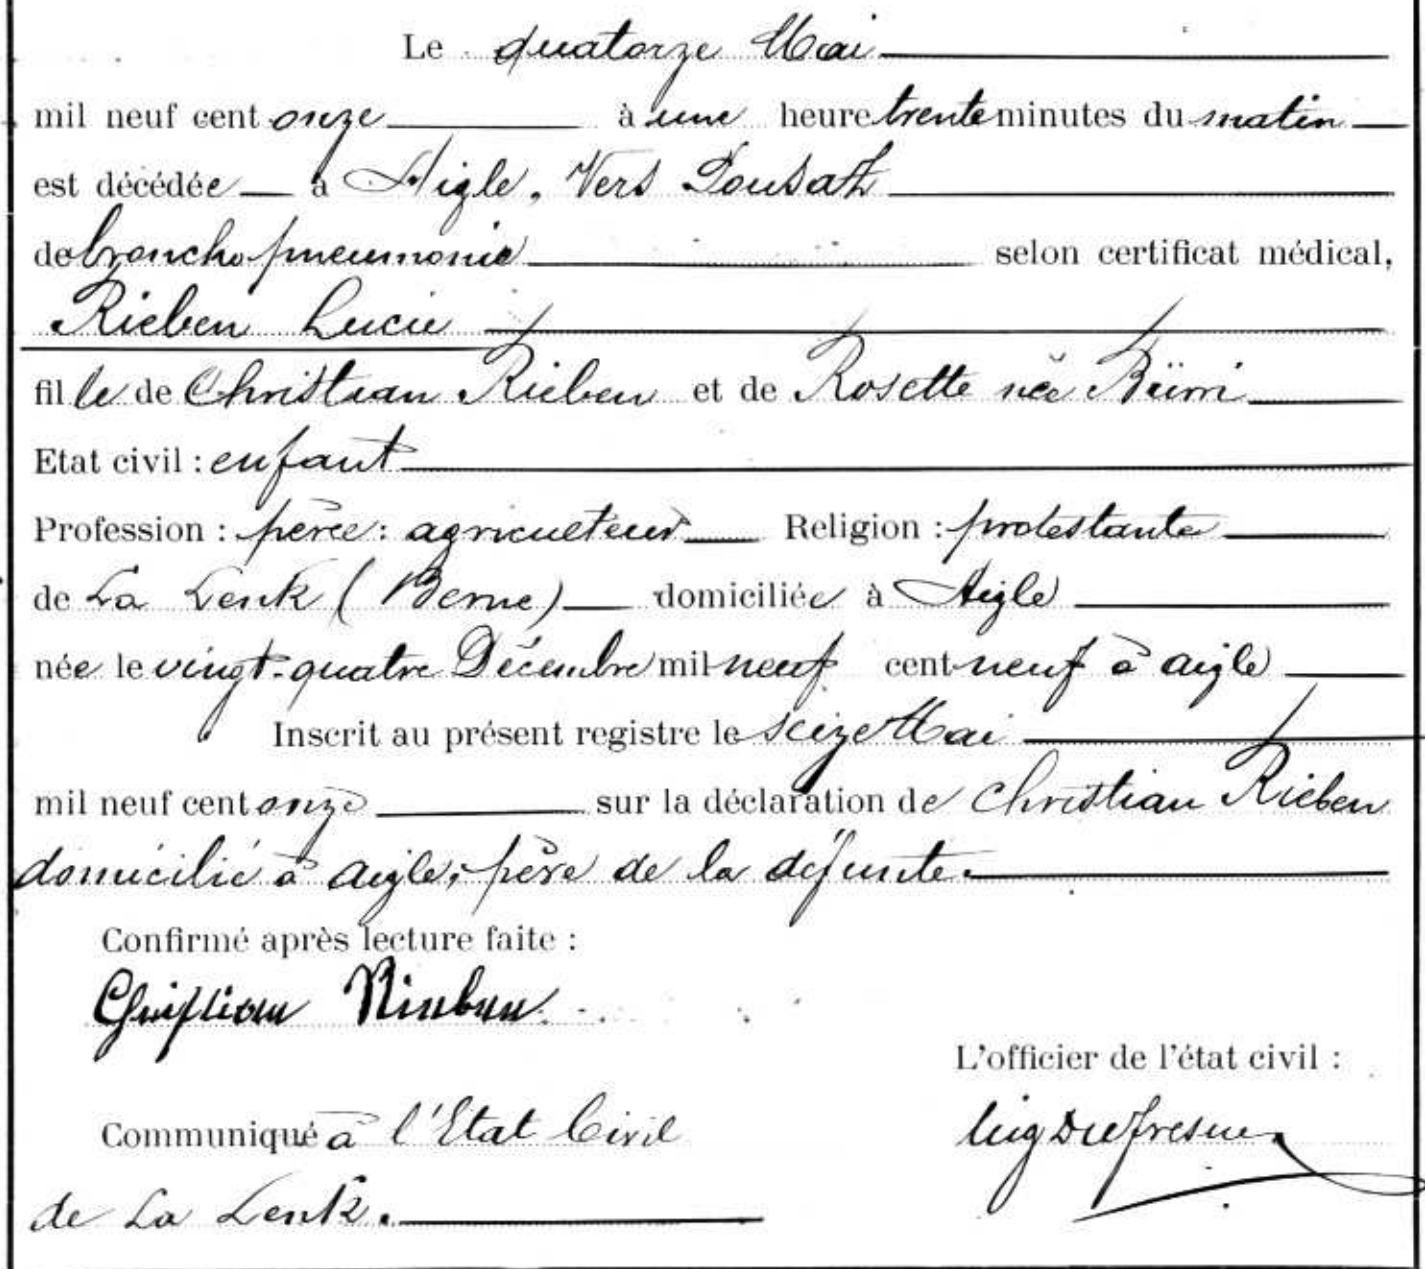 Le quatorze Mai
mil neuf cent onze à une heure trente minutes du matin
est décédée à Aigle, Vers Pousaz
de broncho pneumonie selon certificat médical,
Rieben Lucie
fille de Christian Rieben et de Rosette née Bürri
Etat civil : enfant
Profession : père : agriculteur Religion : protestante
de La Lenk (Berne) domiciliée à Aigle
née le vingt-quatre Décembre mil neuf cent neuf à aigle
Inscrit au présent registre le seize Mai
mil neuf cent onze sur la déclaration de Christian Rieben
domicilié à aigle, père de la défunte.
Confirmé après lecture faite :
Christian Rieben
L'officier de l'état civil :
Dufresne
Communiqué à l'Etat Civil
de La Lenk.